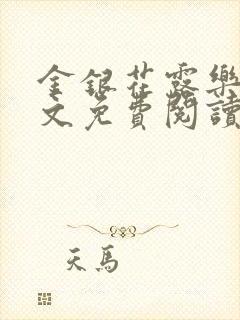 金銀花露樂
文免費閱讀
天馬